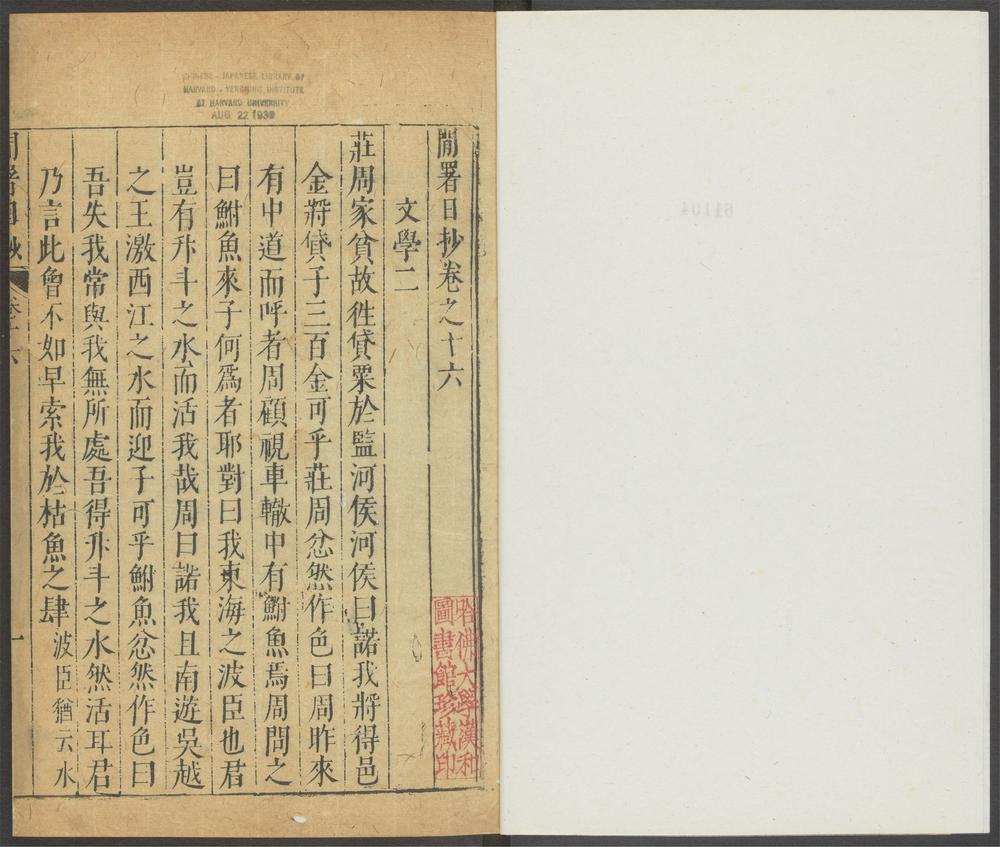 CHINESE - JAPANESE LIBRARY OF
HARVARD - YENCHING INSTITUTE
AT HARVARD UNIVERSITY
AUG 22 1939
閒署日抄卷之十六
文學二
莊周家貧故徃貸粟於監河侯河侯曰諾我將得邑
金將貸子三百金可乎莊周忿然作色曰周昨來
有中道而呼者周顧視車轍中有鮒魚焉周問之
曰鮒魚來子何爲者耶對曰我東海之波臣也君
豈有升斗之水而活我哉周曰諾我且南遊吳越
之王激西江之水而迎子可乎鮒魚忿然作色曰
吾失我常與我無所處吾得升斗之水然活耳君
乃言此曾不如早索我於枯魚之肆波臣猶云水
一
哈佛大學漢和
圖書館珍藏印
61104